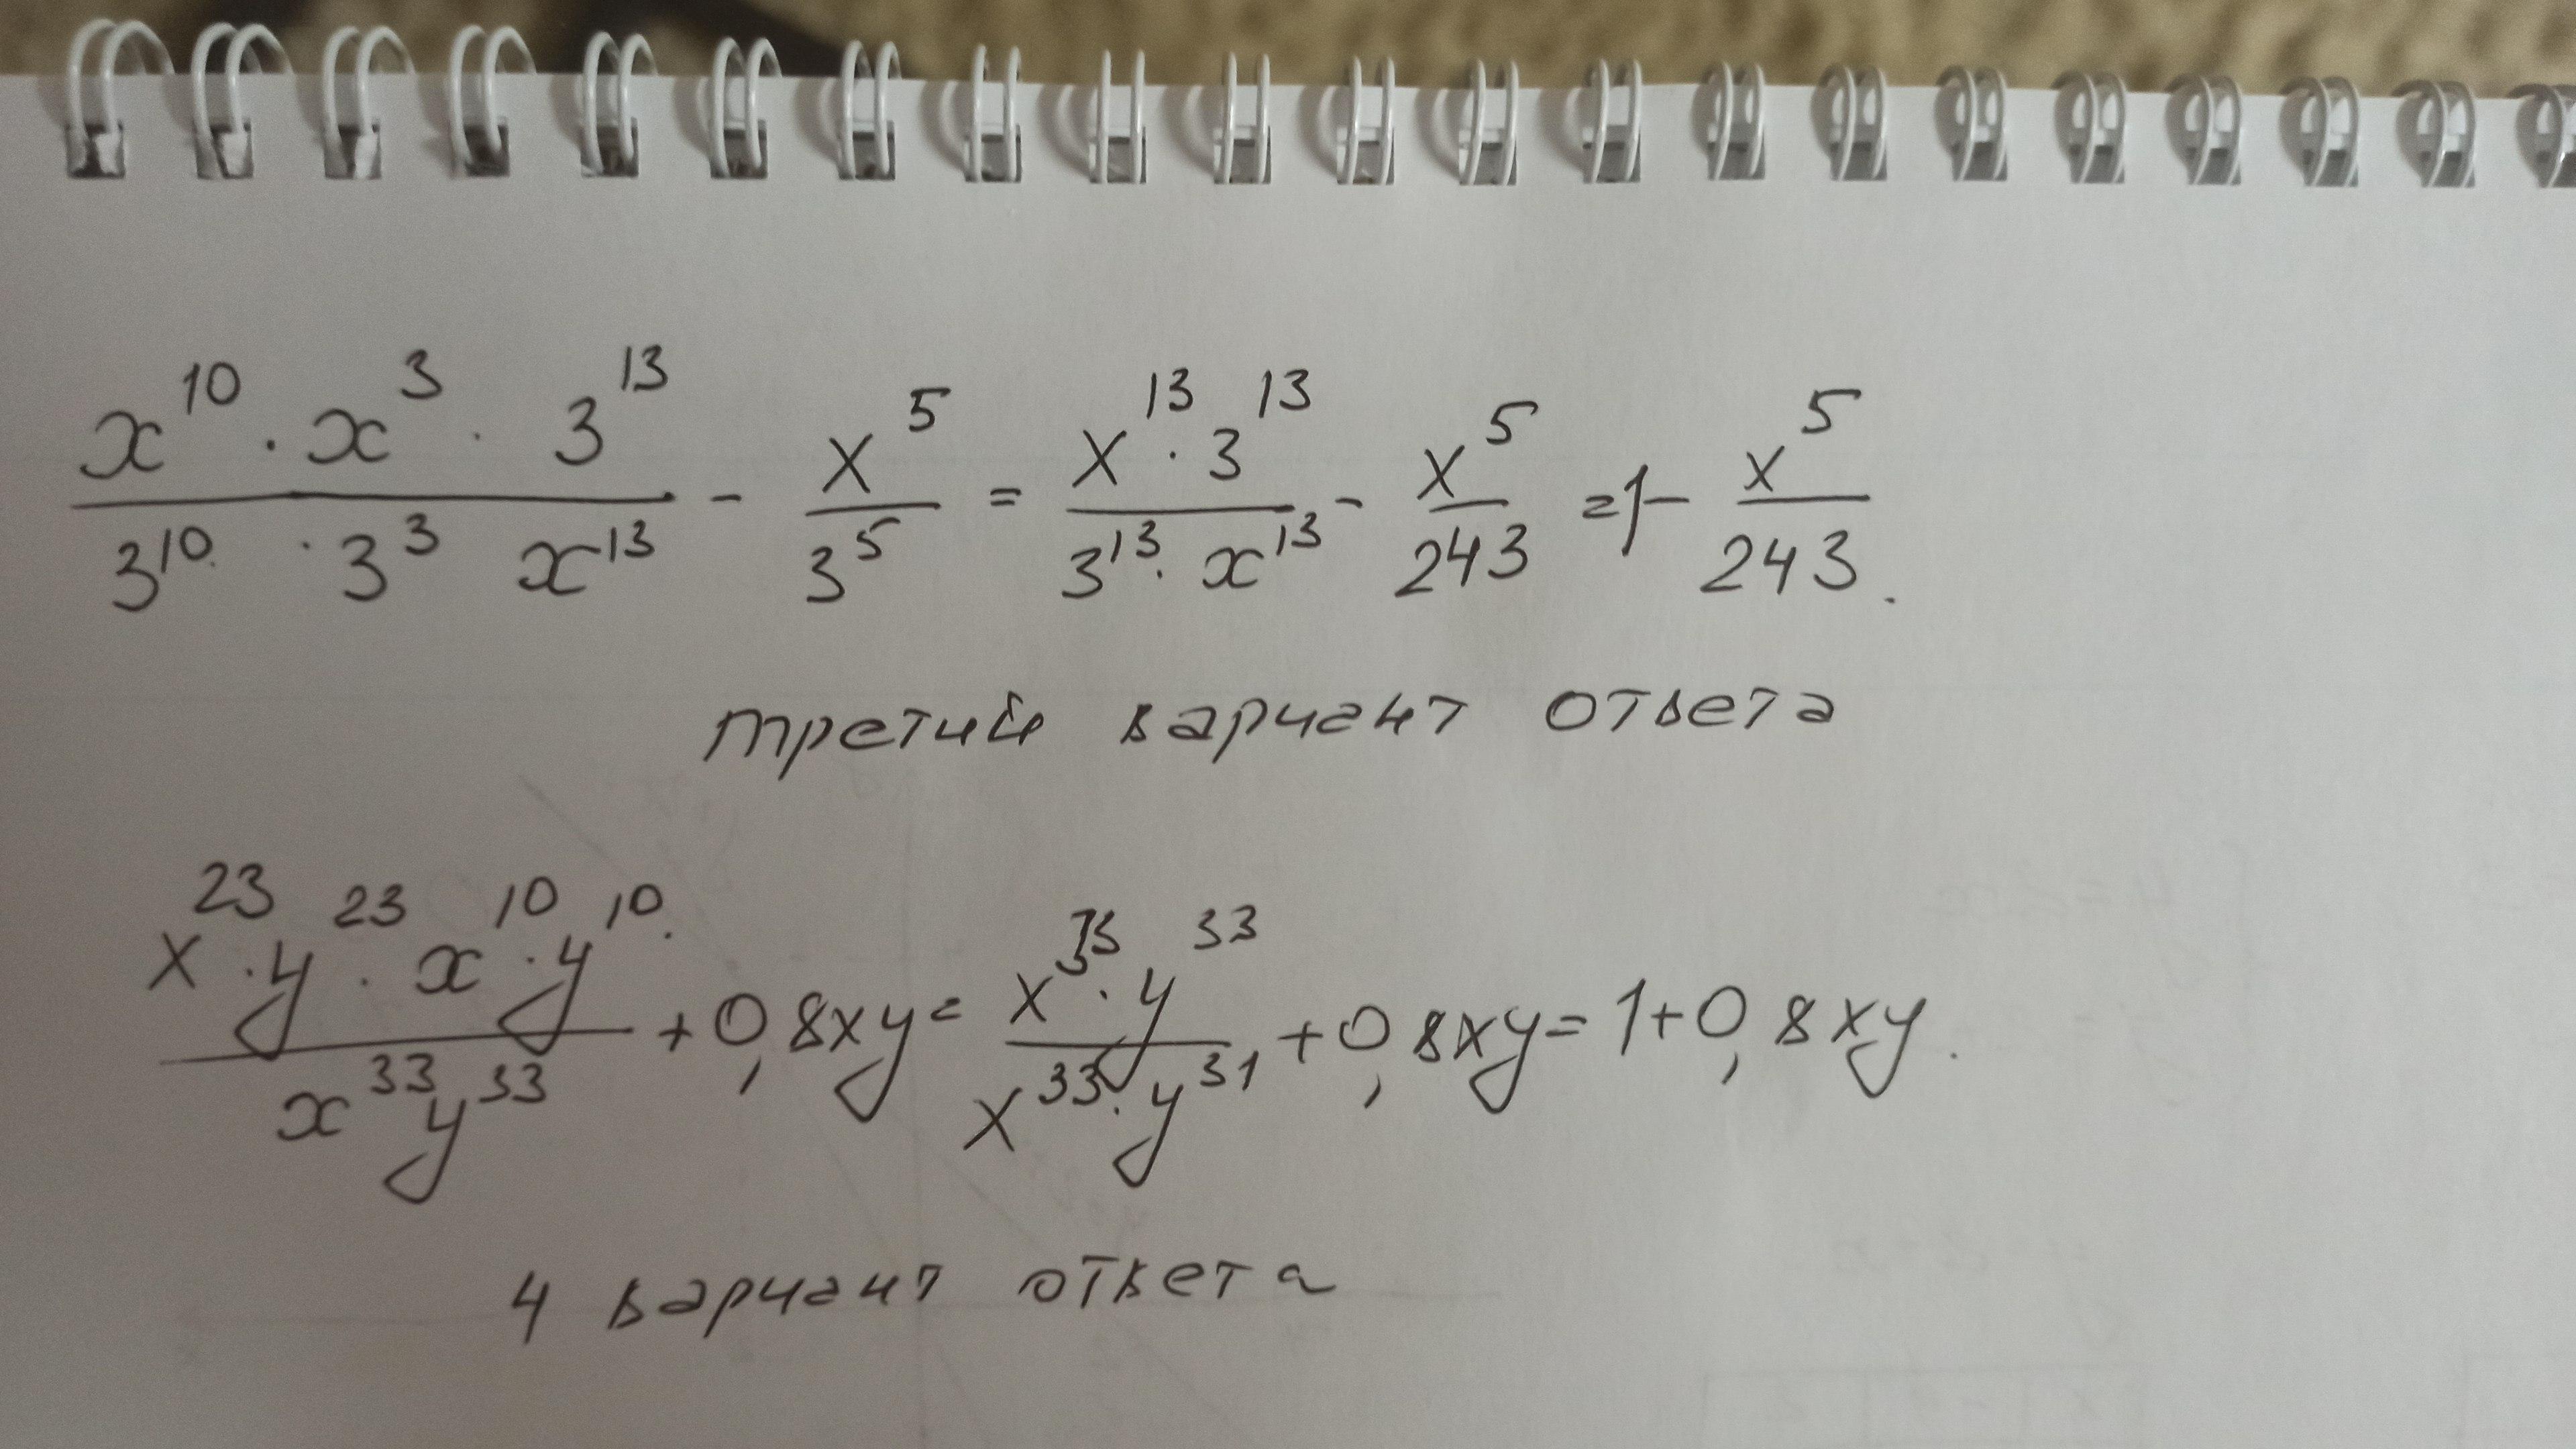 x^10 · x^3 · 3^13 / 3^10 · 3^3 x^13 - x^5 / 3^5 = x^13 · 3^13 / 3^13 · x^13 - x^5 / 243 = 1 - x^5 / 243.
третий вариант ответа
x^23 · y^23 · x^10 · y^10 / x^33 y^33 + 0,8xy = x^33 · y^33 / x^33 · y^31 + 0,8xy = 1 + 0,8xy.
4 вариант ответа